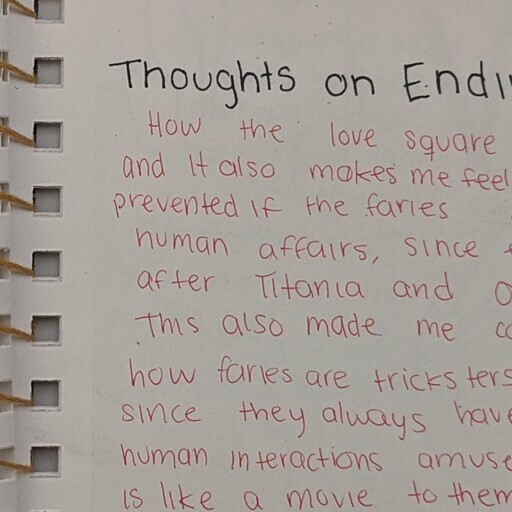 Thoughts on Endi
How the love square
and it also makes me feel
prevented if the faries
human affairs, since
after Titania and O
This also made me co
how faries are tricksters
since they always have
human interactions amuse
is like a movie to them